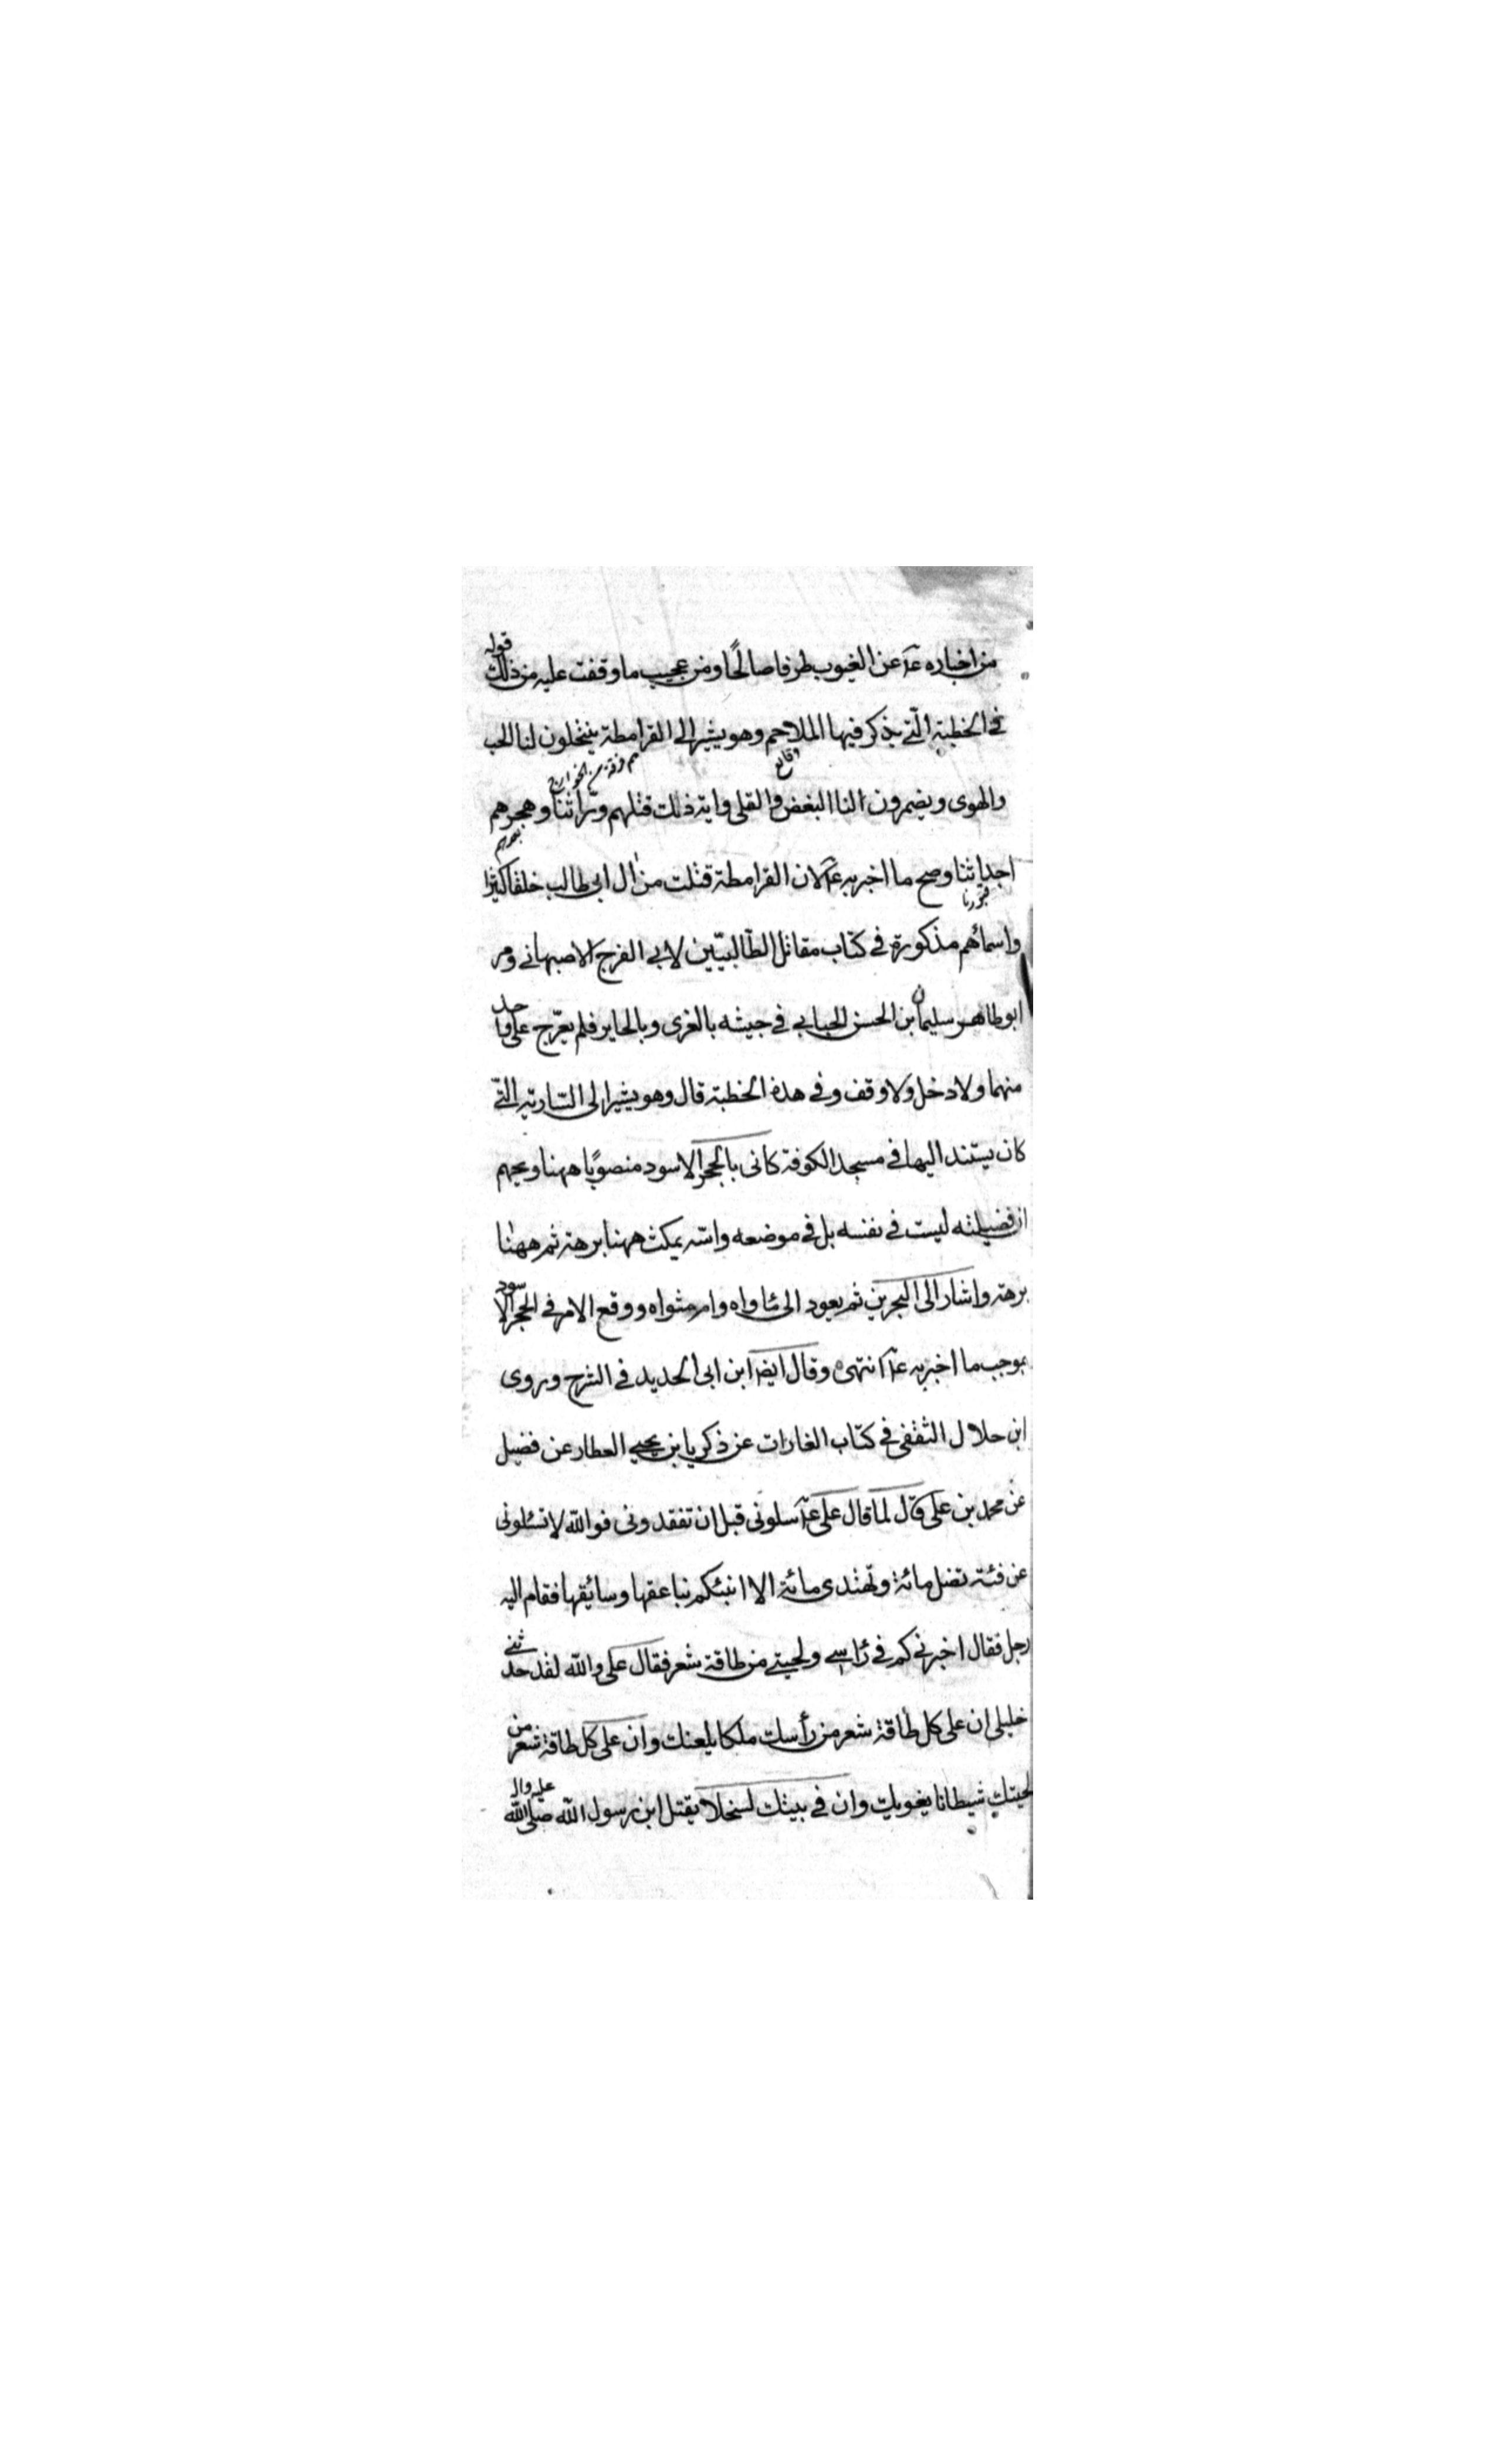 من اخباره ع عن الغيوب طرفا صالحًا ومن عجيب ما وقفت عليه من ذلك قوله
في الخطبة الّتي يذكر فيها الملاحم وهو يشير الى القرامطة ينتحلون لنا الحب
وقايع
هم فرقة من الخوارج
والهوى ويضمرون لنا البغض والقلى واية ذلك قتلهم ورّاثنا وهجرهم
احداثنا وصح ما اخبر به ع لان القرامطة قتلت من ال ابي طالب خلقا كثيرا
قبورنا
واسمائهم مذكورة في كتاب مقاتل الطّالبيّين لابي الفرج الاصبهاني ومر
ابو طاهر سليمان بن الحسن الجبابي في جيشه بالغرى وبالحاير فلم يعرّج على واحد
منهما ولا دخل ولا وقف وفي هذه الخطبة قال وهو يشير الى السّارية الّتي
كان يستند اليها في مسجد الكوفة كانى بالحجر الاسود منصوبًا ههنا ويحهم
ان فضيلته ليست في نفسه بل في موضعه واسّه يمكث ههنا برهة ثم ههنا
برهة واشار الى البحرين ثم يعود الى مأواه وام مثواه ووقع الامر في الحجر الاسود
بموجب ما اخبر به ع انتهى وقال ايضا ابن ابى الحديد في الشرح وروى
ابن حلال الثقفى في كتاب الغارات عن ذكريا بن يحيى العطار عن فضيل
عن محمد بن على قال لما قال على ع سلونى قبل ان تفقدونى فوالله لا تسئلونى
عن فئة تضل مائة وتهتدى مائة الا انبئكم بناعقها وسائيقها فقام اليه
رجل فقال اخبرنى كم في رأسي ولحيتي من طاقة شعر فقال على والله لقد حدثني
خليلى ان على كل طاقة شعر من رأسك ملكا يلعنك وان على كل طاقة شعر من
لحيتك شيطانا يغويك وان في بيتك لسخلا يقتل ابن رسول الله صلى الله عليه وال